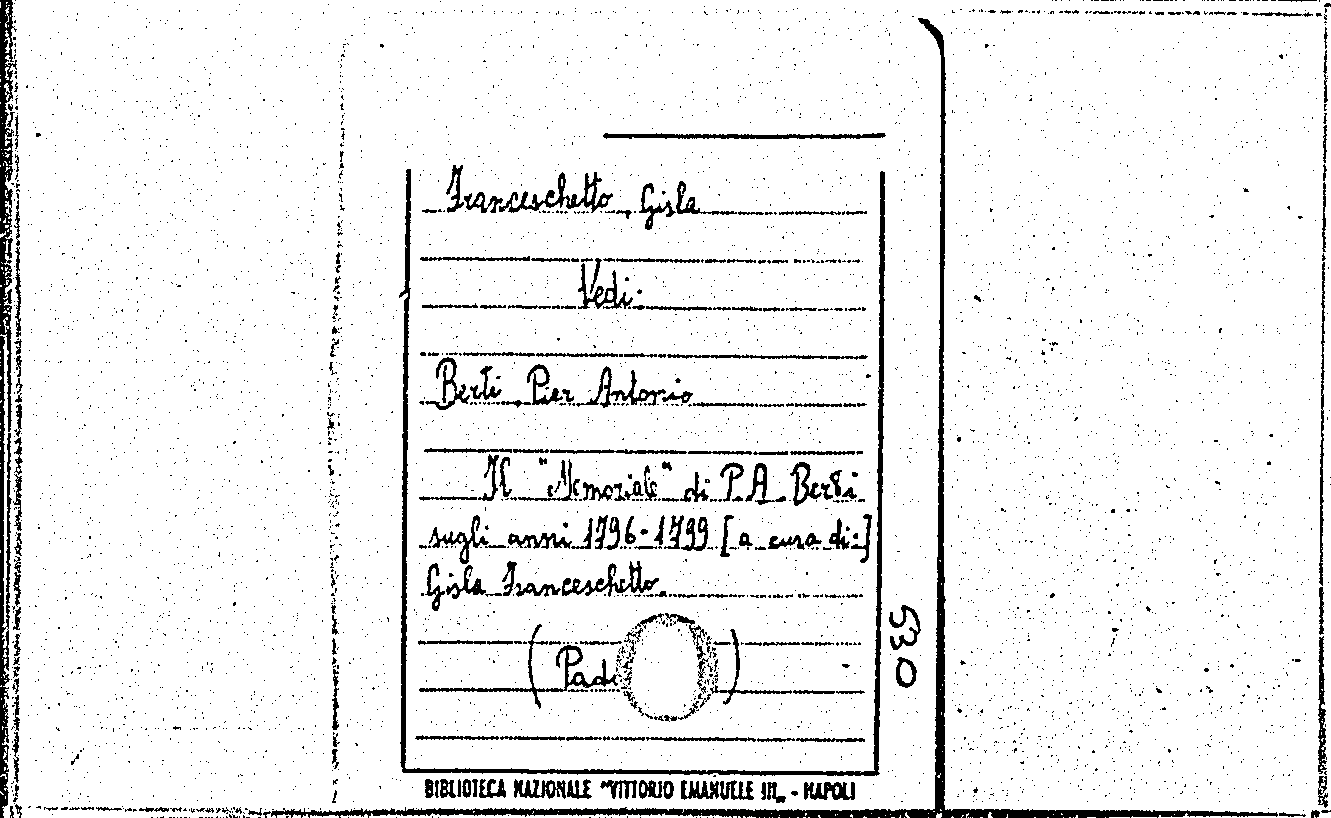 Franceschetto, Gisla
Vedi:
Berti, Pier Antonio
Il "Memoriale" di P.A. Berti
sugli anni 1796-1799 [a cura di:]
Gisla Franceschetto.
(Pad )
530
BIBLIOTECA NAZIONALE "VITTORIO EMANUELE III„ - NAPOLI